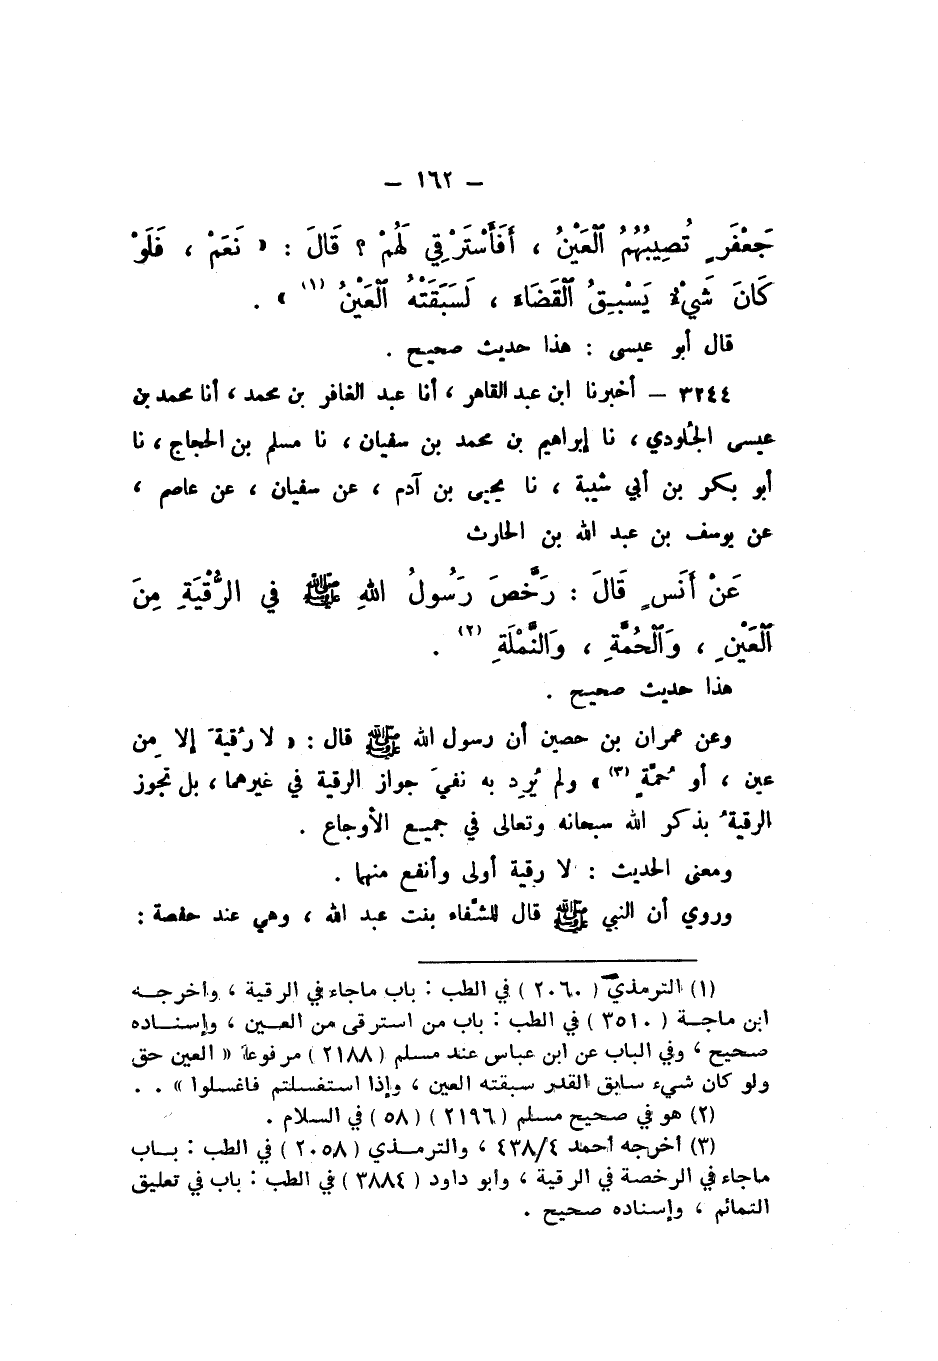 — ١٦٢ —
جَعْفَرٍ تُصِيبُهُمُ ٱلْعَيْنُ ، أَفَأَسْتَرْقِي لَهُمْ ؟ قَالَ : « نَعَمْ ، فَلَوْ
كَانَ شَيْءٌ يَسْبِقُ ٱلْقَضَاءَ ، لَسَبَقَتْهُ ٱلْعَيْنُ (١) » .
قال أبو عيسى : هذا حديث صحيح .
٣٢٤٤ — أخبرنا ابن عبد القاهر ، أنا عبد الغافر بن محمد ، أنا محمد بن
عيسى الجُلودي ، نا إبراهيم بن محمد بن سفيان ، نا مسلم بن الحجاج ، نا
أبو بكر بن أبي شيبة ، نا يحيى بن آدم ، عن سفيان ، عن عاصم ،
عن يوسف بن عبد الله بن الحارث
عَنْ أَنَسٍ قَالَ : رَخَّصَ رَسُولُ اللهِ ﷺ في الرُّقْيَةِ مِنَ
ٱلْعَيْنِ ، وَٱلْحُمَّةِ ، وَالنَّمْلَةِ (٢) .
هذا حديث صحيح .
وعن عمران بن حصين أن رسول الله ﷺ قال : « لا رُقيةَ إلا مِن
عين ، أو حُمَّةٍ (٣) » ولم يُرِد به نفيَ جواز الرقية في غيرهما ، بل تجوز
الرقيةُ بذكر الله سبحانه وتعالى في جميع الأوجاع .
ومعنى الحديث : لا رقية أولى وأنفع منها .
وروي أن النبي ﷺ قال للشَّفاء بنت عبد الله ، وهي عند حفصة :
(١) الترمذي ( ٢٠٦٠ ) في الطب : باب ماجاء في الرقية ، وأخرجه
ابن ماجة ( ٣٥١٠ ) في الطب : باب من استرقى من العين ، وإسناده
صحيح ، وفي الباب عن ابن عباس عند مسلم ( ٢١٨٨ ) مرفوعاً « العين حق
ولو كان شيء سابق القدر سبقته العين ، وإذا استغسلتم فاغسلوا » . .
(٢) هو في صحيح مسلم ( ٢١٩٦ ) ( ٥٨ ) في السلام .
(٣) أخرجه أحمد ٤٣٨/٤ ، والترمذي ( ٢٠٥٨ ) في الطب : باب
ماجاء في الرخصة في الرقية ، وأبو داود ( ٣٨٨٤ ) في الطب : باب في تعليق
التمائم ، وإسناده صحيح .